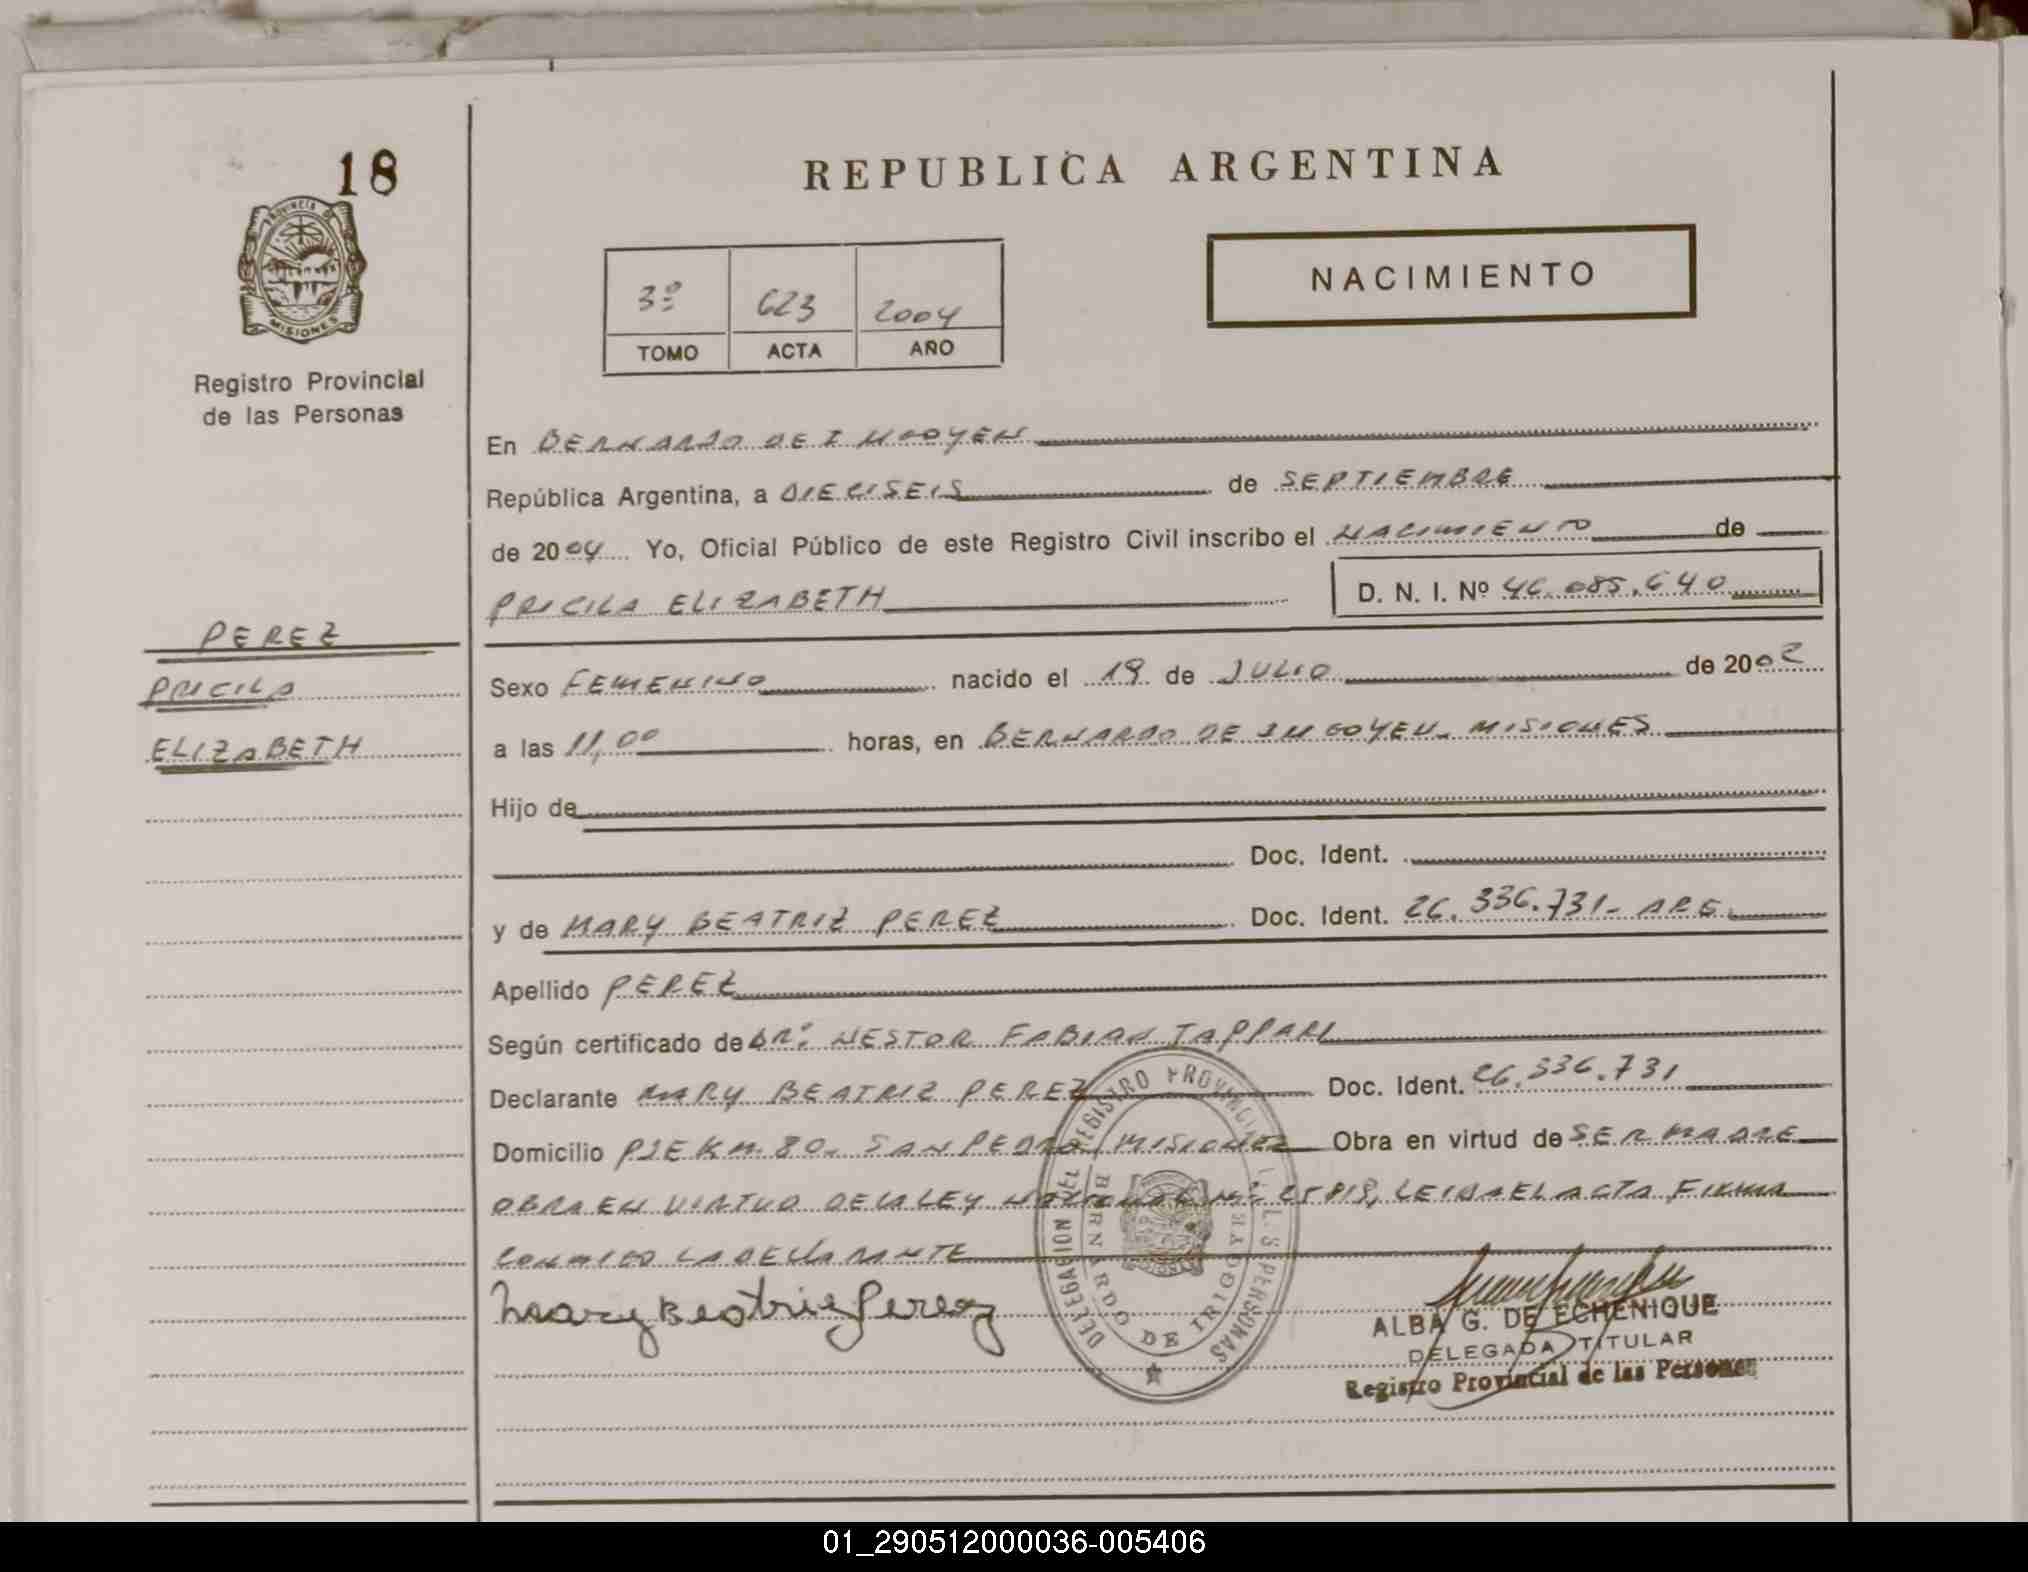 18
PROVINCIA DE
MISIONES
Registro Provincial
de las Personas
PEREZ
PRICILA
ELIZABETH
REPUBLICA ARGENTINA
NACIMIENTO
3º 623 2004
TOMO ACTA AÑO
En BERNARDO DE IRIGOYEN
República Argentina, a DIECISEIS de SEPTIEMBRE
de 2004 Yo, Oficial Público de este Registro Civil inscribo el NACIMIENTO de
PRICILA ELIZABETH D. N. I. Nº 46.085.640
Sexo FEMENINO nacido el 19 de JULIO de 2002
a las 11,00 horas, en BERNARDO DE IRIGOYEN - MISIONES
Hijo de
Doc. Ident.
y de MARY BEATRIZ PEREZ Doc. Ident. 26.336.731- ARG.
Apellido PEREZ
Según certificado de DR. NESTOR FABIAN TAPPARI
Declarante MARY BEATRIZ PEREZ Doc. Ident. 26.336.731
Domicilio PJE KM. 80- SAN PEDRO, MISIONES Obra en virtud de SER MADRE
OBRA EN VIRTUD DE LA LEY NACIONAL Nº 25819, LEIDA EL ACTA FIRMA
CONMIGO LA DECLARANTE
Mary Beatriz Perez
DELEGACION DEL REGISTRO PROVINCIAL DE LAS PERSONAS
BERNARDO DE IRIGOYEN
ALBA G. DE ECHENIQUE
DELEGADA TITULAR
Registro Provincial de las Personas
01_290512000036-005406